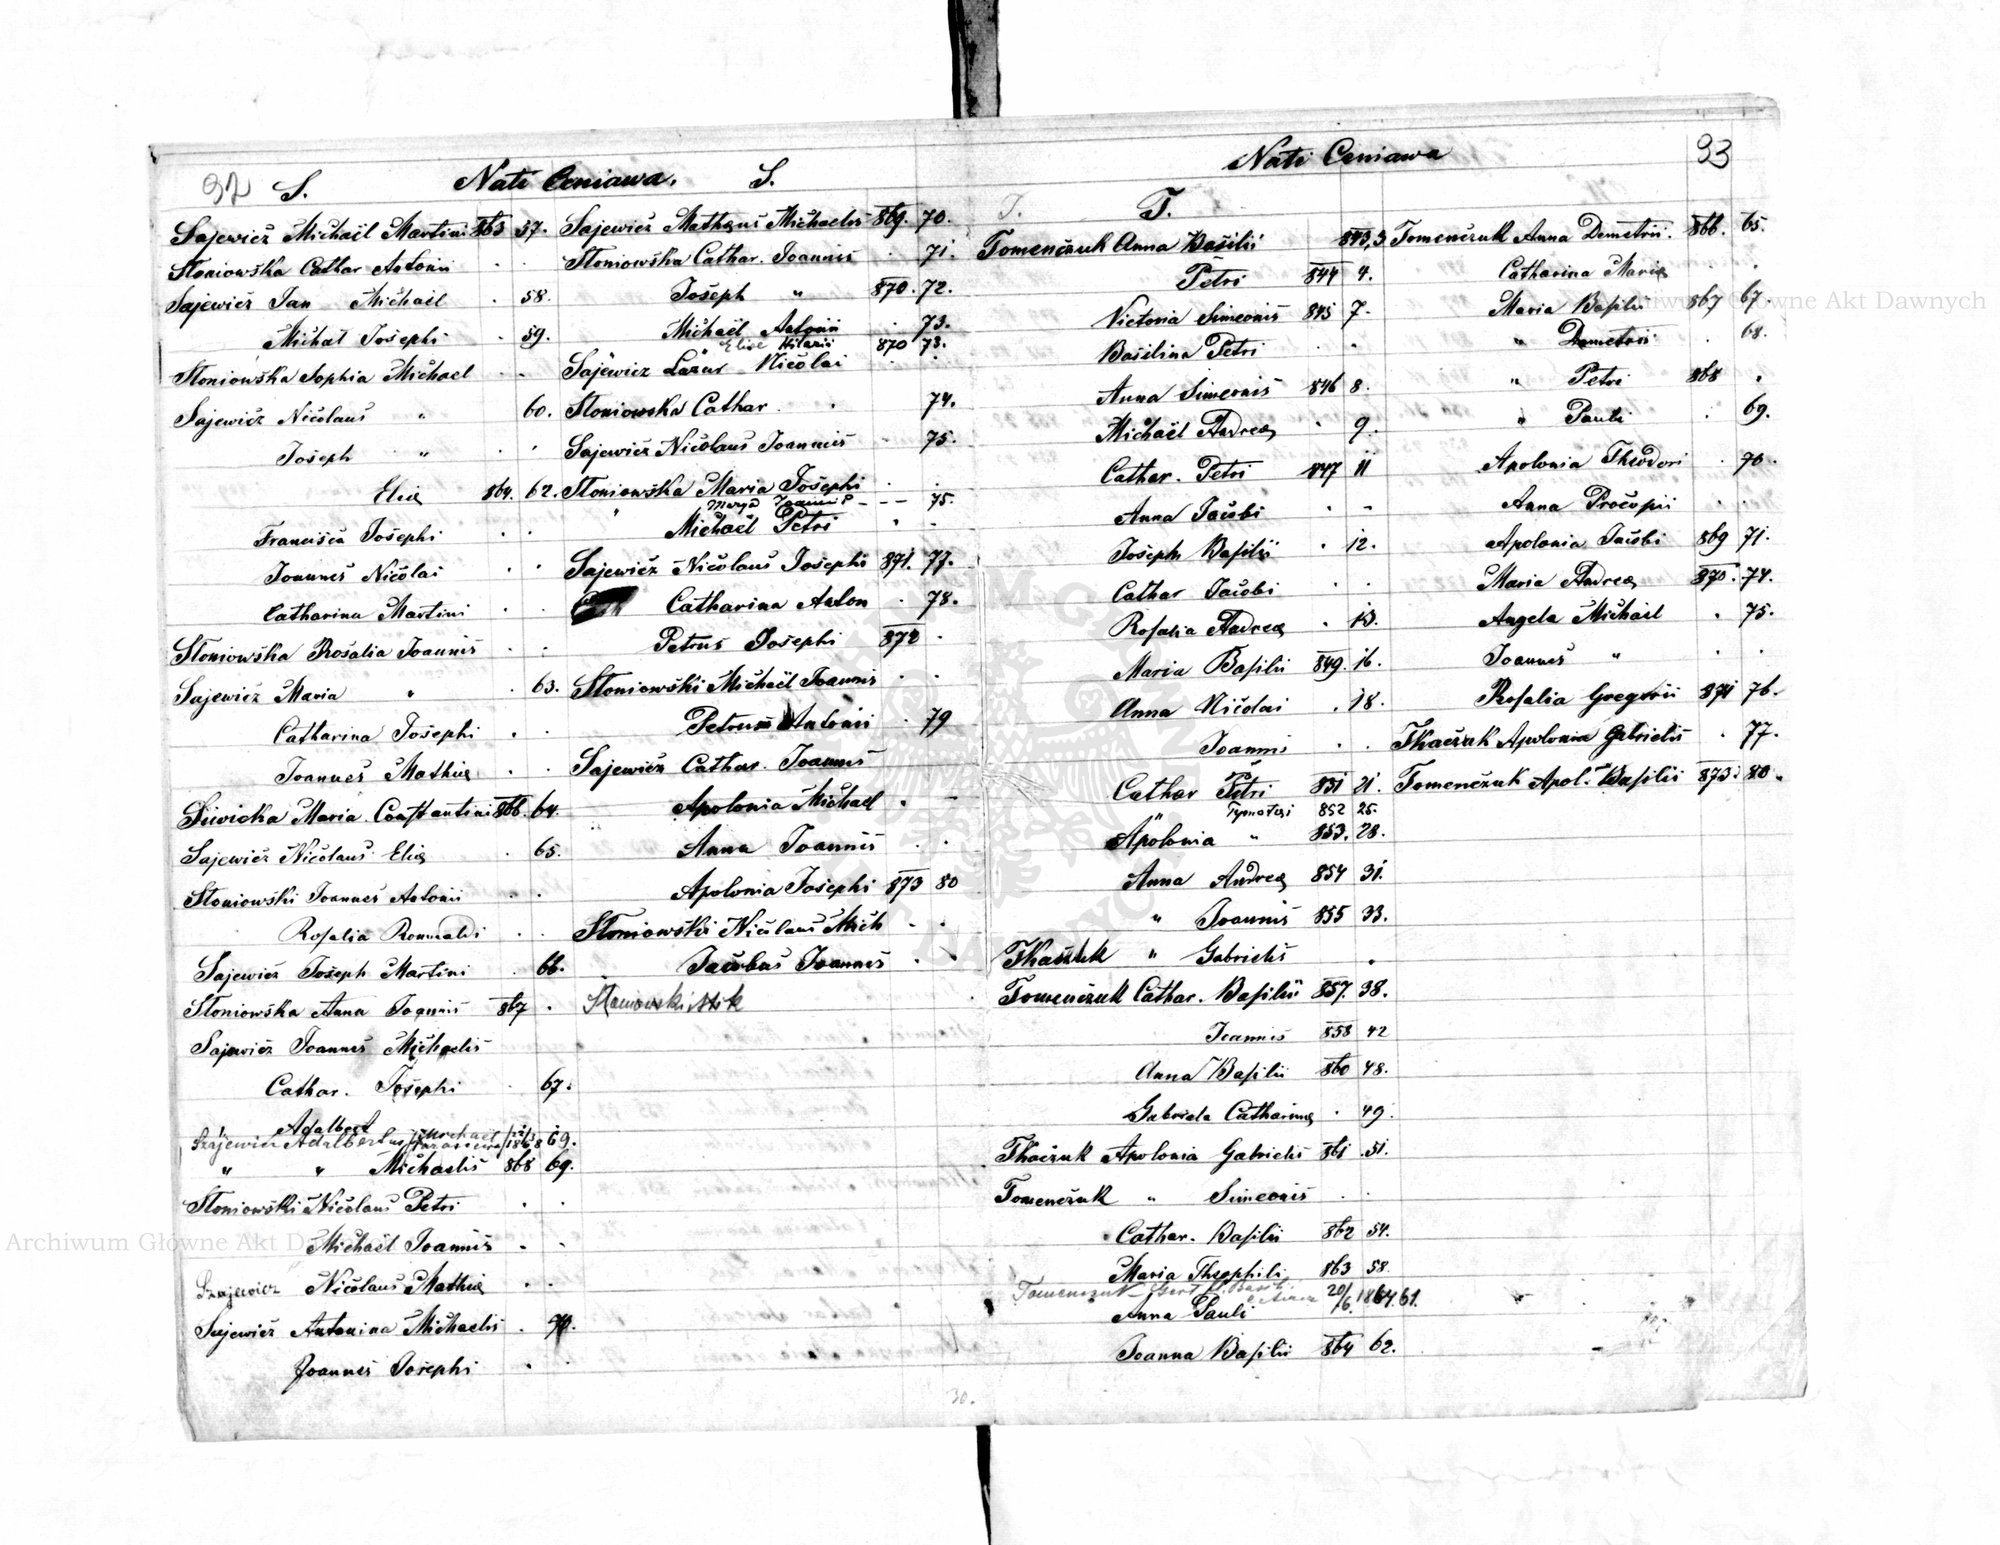 92 S. Nati Ceniawa. S.
Sajewicz Michaël Martini 863 57.
Sloniowska Cathar Antonii . .
Sajewicz Jan Michaël . 58.
Michal Josephi . 59.
Sloniowska Sophia Michael . .
Sajewicz Nicolaus " 60.
Joseph " . .
Eliæ 864. 62.
Francisca Josephi . .
Joannes Nicolai . .
Catharina Martini . .
Sloniowska Rosalia Joannis . .
Sajewicz Maria " . 63.
Catharina Josephi . .
Joannes Mathiæ . .
Siwicka Maria Constantini 866. 64.
Sajewicz Nicolaus Eliæ . 65.
Sloniowski Joannes Antonii . .
Rosalia Romualdi . .
Sajewicz Joseph Martini . 66.
Sloniowska Anna Joannis 867 .
Sajewicz Joannes Michaelis
Cathar. Josephi . 67.
Adalbert
Szajewicz Adalbertus Michael 1868 69.
" " Michaelis 868 69.
Sloniowski Nicolaus Petri . .
Michaël Joannis . .
Szajewicz Nicolaus Mathiæ . .
Sajewicz Antonina Michaelis . 70.
Joannes Josephi . .
Sajewicz Matheus Michaelis 869. 70.
Sloniowska Cathar. Joannis . 71.
Joseph " 870. 72.
Michaël Antonii . 73.
Elise Hilarii 870 73.
Sajewicz Lazar Nicolai . .
Sloniowska Cathar . . 74.
Sajewicz Nicolaus Joannis . 75.
Sloniowska Maria Josephi . .
" Marya Joannis - - - 75.
Michaël Petri . .
Sajewicz Nicolaus Josephi 871. 77.
Catharina Anton . 78.
Petrus Josephi 872 .
Sloniowski Michaël Joannis . .
Petrus Antonii . 79
Sajewicz Cathar. Joannis
Apolonia Michael . -
Anna Joannis . .
Apolonia Josephi 873 80
Sloniowski Nicolaus Mich . .
Jacobus Joannis . .
Nati Ceniawa 93
T. T.
Tomenczuk Anna Basilii 843. 3.
Petri 844 4.
Victoria Simeonis 845 7.
Basilina Petri . "
Anna Simeonis 846 8.
Michaël Andreæ . 9.
Cathar. Petri 847 11
Anna Jacobi . -
Joseph Basilii . 12.
Cathar Jacobi . .
Rosalia Andreæ . 13.
Maria Basilii 849. 16.
Anna Nicolai . 18.
Joannis . .
Cathar Petri 851 21.
Tymotesi 852 25.
Apolonia " 853. 28.
Anna Andreæ 854 31.
" Joannis 855 33.
Tkaczuk " Gabrielis .
Tomenczuk Cathar. Basilii 857. 38.
Joannis 858 42
Anna Basilii 860 48.
Gabriela Catharinæ . 49.
Tkaczuk Apolonia Gabrielis 861 51.
Tomenczuk " Simeonis . .
Cathar. Basilii 862 54.
Maria Theophili 863 58.
Tomenczuk 20/6. 1864. 61.
Anna Pauli
Joanna Basilii 864 62.
Tomenczuk Anna Demetrii. 866. 65.
Catharina Mariæ . .
Maria Basilii 867 67.
" Demetrii . 68.
" Petri 868 .
" Pauli . 69.
Apolonia Theodori . 70.
Anna Procopii . .
Apolonia Jacobi 869 71.
Maria Andreæ 870. 74.
Angela Michaël . 75.
Joannes " . .
Rosalia Gregorii 871 76.
Tkaczuk Apolonia Gabrielis . 77.
Tomenczuk Apol. Basilii 873. 80.
30.
Archiwum Główne Akt Dawnych
Archiwum Główne Akt Dawnych